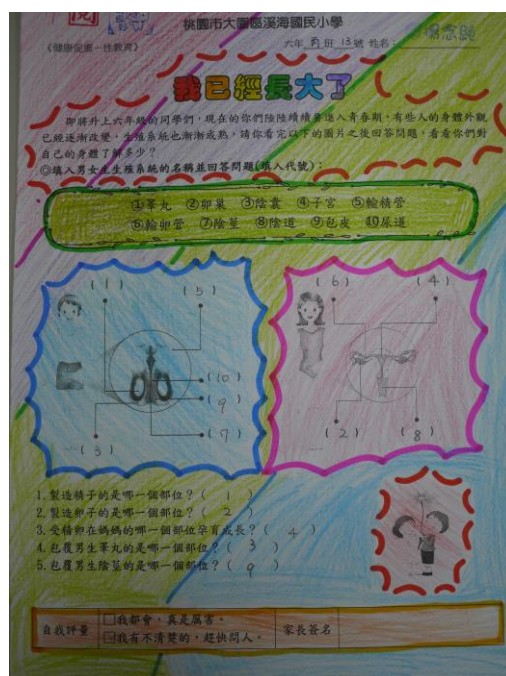 閱
桃園市大園區溪海國民小學
《健康促進-性教育》
六年 丙 班 13 號 姓名:楊念純
我已經長大了
即將升上六年級的同學們,現在的你們陸陸續續要進入青春期,有些人的身體外觀
已經逐漸改變,生殖系統也漸漸成熟,請你看完以下的圖片之後回答問題,看看你們對
自己的身體了解多少?
◎填入男女生生殖系統的名稱並回答問題(填入代號):
①睪丸 ②卵巢 ③陰囊 ④子宮 ⑤輸精管
⑥輸卵管 ⑦陰莖 ⑧陰道 ⑨包皮 ⑩尿道
(1) (5)
(10)
(9)
(7)
(3)
(6) (4)
(2) (8)
1.製造精子的是哪一個部位?( 1 )
2.製造卵子的是哪一個部位?( 2 )
3.受精卵在媽媽的哪一個部位孕育成長?( 4 )
4.包覆男生睪丸的是哪一個部位?( 3 )
5.包覆男生陰莖的是哪一個部位?( 9 )
自我評量
□我都會,真是厲害。
□我有不清楚的,趕快問人。
家長簽名